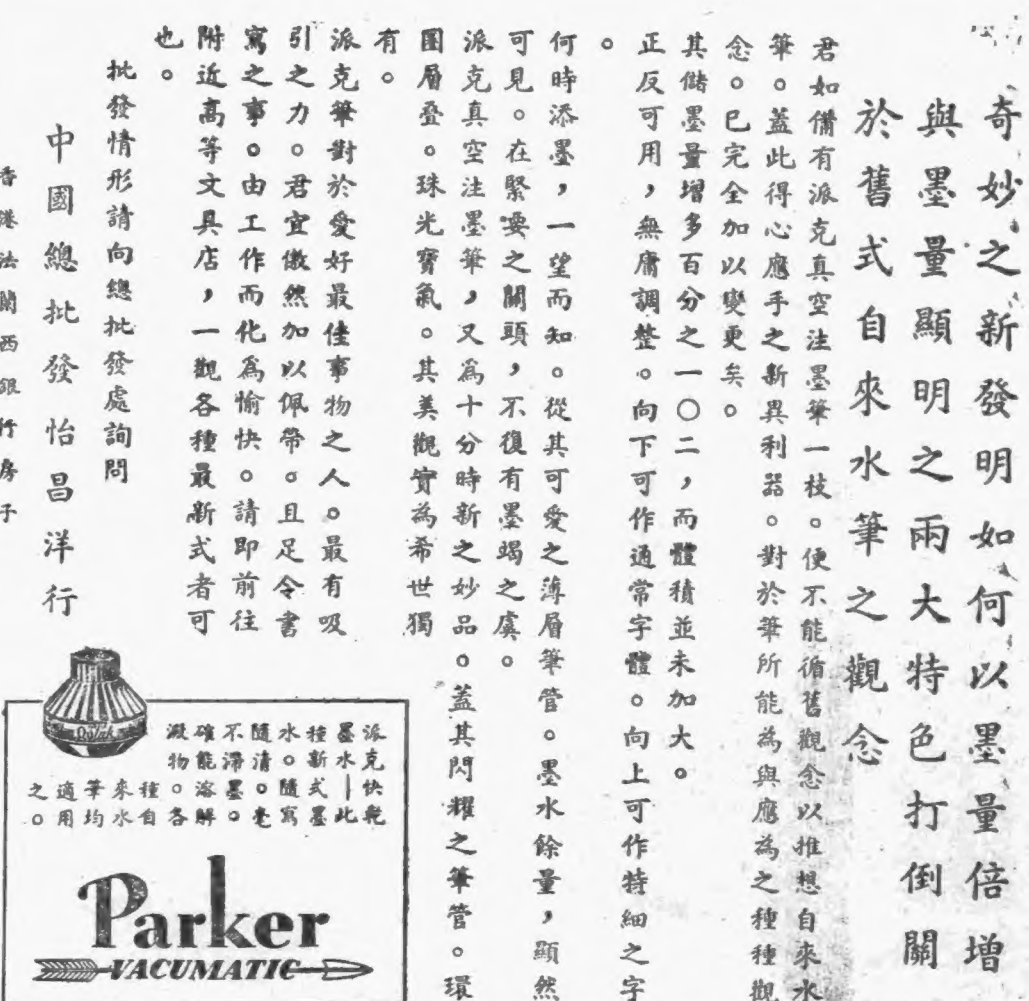 奇妙之新發明如何以墨量倍增
與墨量顯明之兩大特色打倒關
於舊式自來水筆之觀念
君如備有派克真空注墨筆一枝。便不能循舊觀念以推想自來水
筆。蓋此得心應手之新異利器。對於筆所能為與應為之種種觀
念。已完全加以變更矣。
其儲墨量增多百分之一〇二,而體積並未加大。
正反可用,無庸調整。向下可作通常字體。向上可作特細之字
。
何時添墨,一望而知。從其可愛之薄層筆管。墨水餘量,顯然
可見。在緊要之關頭,不復有墨竭之虞。
派克真空注墨筆,又爲十分時新之妙品。蓋其閃耀之筆管。環
圍層叠。珠光寶氣。其美觀實為希世獨
有。
派克筆對於愛好最佳事物之人。最有吸
引之力。君宜傲然加以佩帶。且足令書
寫之事。由工作而化爲愉快。請即前往
附近高等文具店,一觀各種最新式者可
也。
批發情形請向總批發處詢問
中國總批發怡昌洋行
香港法蘭西銀行房子
派克快乾
墨水—此
種新式墨
水。隨寫
隨清。毫
不滯墨。
確能溶解
澱物。各
種自
來水
筆均
適用
之。
Parker
VACUMATIC